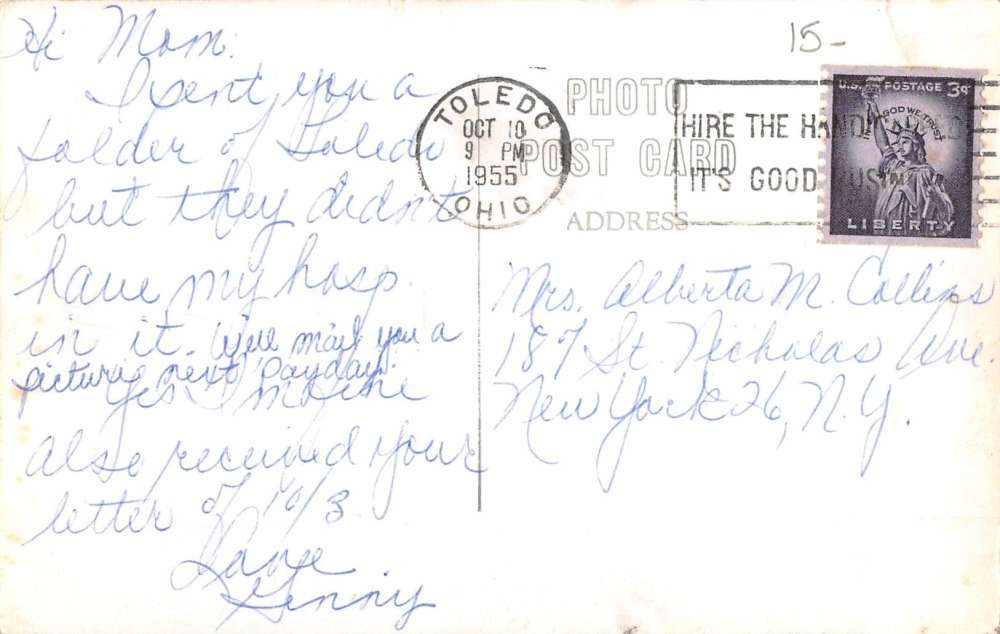 15-
Hi Mom:
I sent you a
folder of Toledo
but they didn't
have my hosp.
in it. We'll mail you a
picture next payday.
Yes I
also received your
letter of 10/3.
Love
Ginny
PHOTO
POST CARD
ADDRESS
TOLEDO
OCT 10
9 PM
1955
OHIO
HIRE THE HANDICAPPED
IT'S GOOD BUSINESS
U.S. POSTAGE 3¢
IN GOD WE TRUST
LIBERTY
Mrs. Alberta M. Collins
187 St. Nicholas Ave.
New York 26, N.Y.